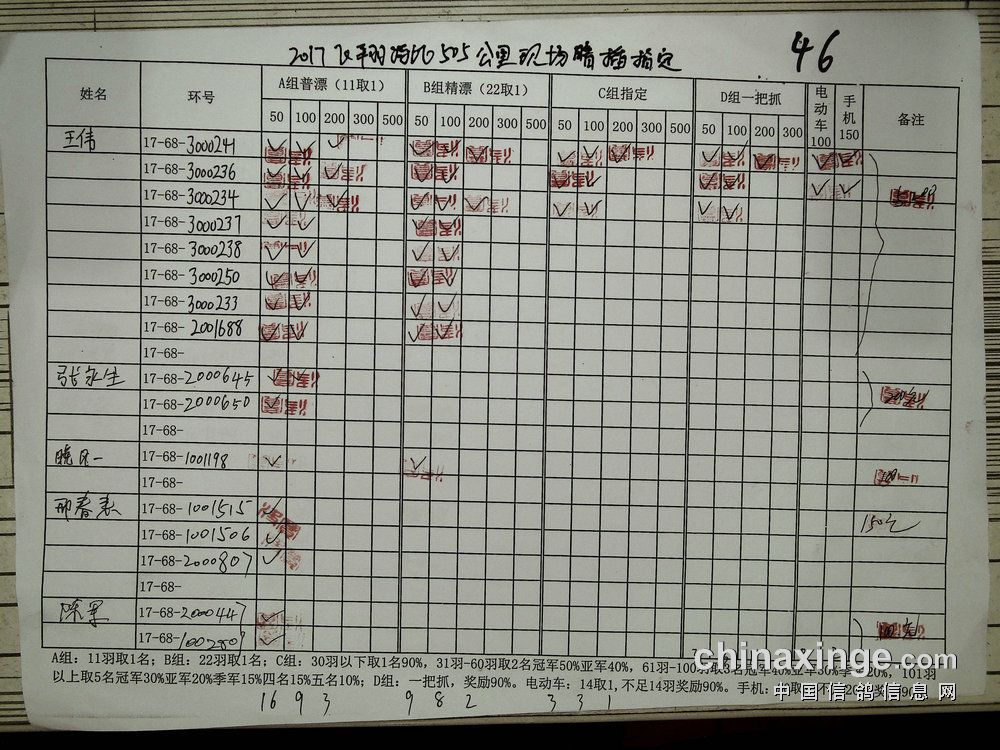 2017 505公里现场暗插指定
46
姓名 环号 A组普漂（11取1） B组精漂（22取1） C组指定 D组一把抓 电动车100 手机150 备注
50 100 200 300 500 50 100 200 300 500 50 100 200 300 500 50 100 200 300
王伟 17-68-3000241
17-68-3000236
17-68-3000234
17-68-3000237
17-68-3000238
17-68-3000250
17-68-3000233
17-68-2001688
17-68-
张永生 17-68-2000645
17-68-2000650
17-68-
17-68-1001198
17-68-
17-68-1001515 150元
17-68-1001506
17-68-2000807
17-68-
陈军 17-68-200044
17-68-
A组：11羽取1名；B组：22羽取1名；C组：30羽以下取1名90%，31羽-60羽取2名冠军50%亚军40%，61羽-100羽取3名冠军40%亚军30%季军20%，101羽
以上取5名冠军30%亚军20%季军15%四名15%五名10%；D组：一把抓，奖励90%。电动车：14取1,不足14羽奖励90%。手机：
1693 982 331
chinaxinge.com
中国信鸽信息网